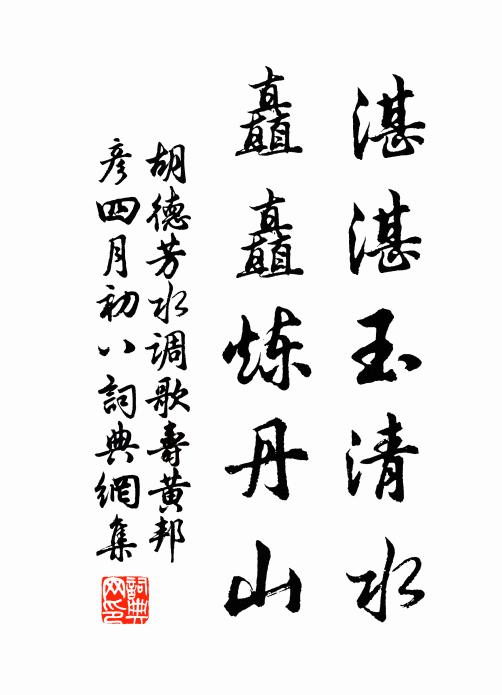 湛湛玉清水
矗矗炼丹山
胡德芳水调歌寿黄邦
彦四月初八詞典網集
詞典
网印